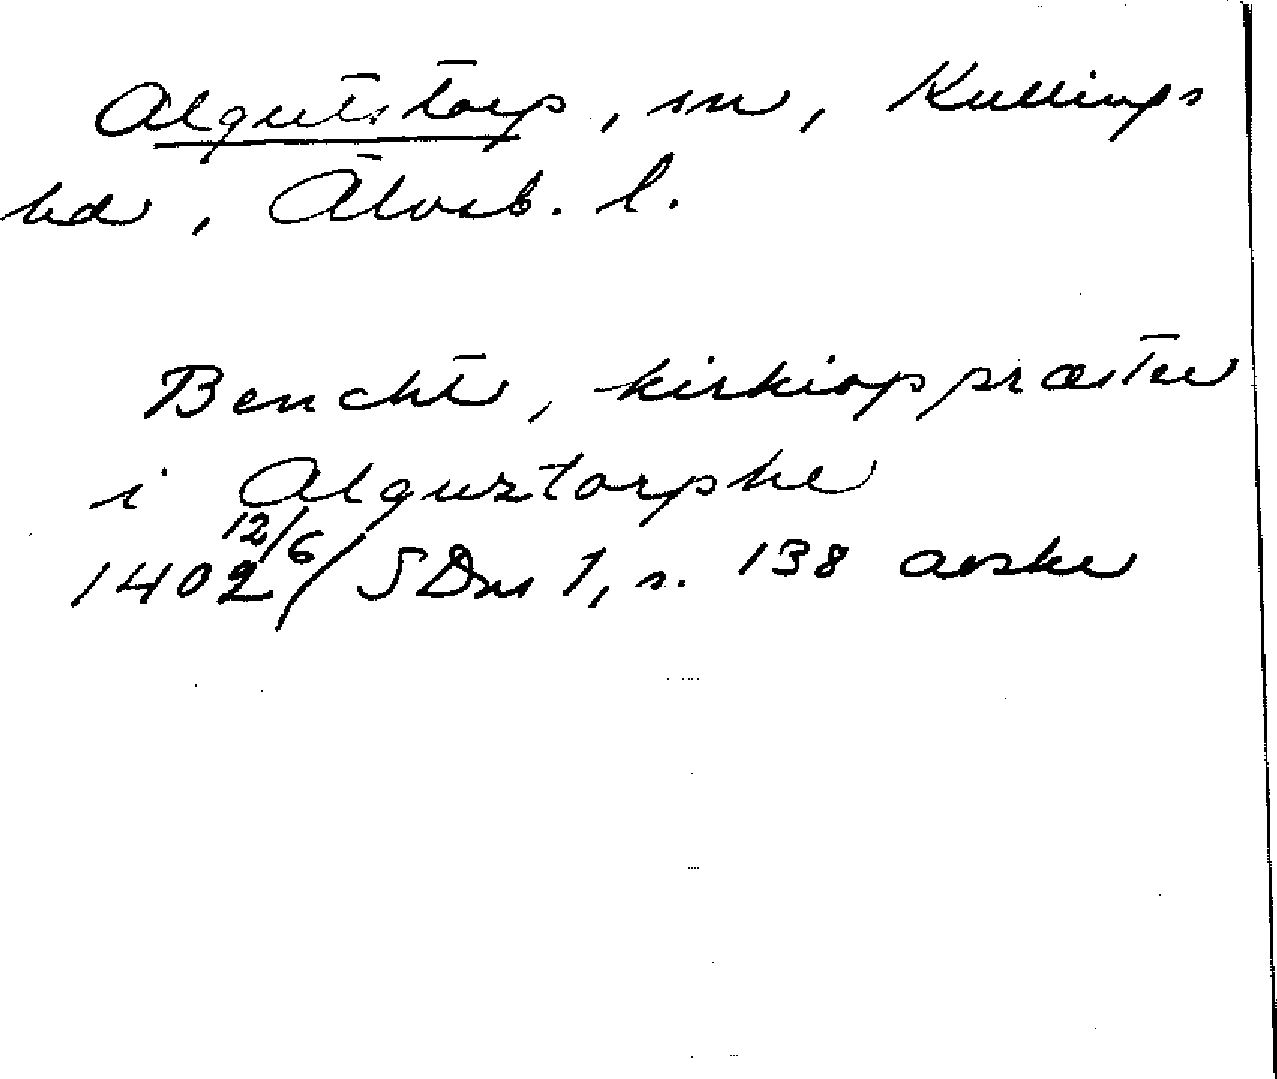 Algutstorp, sn, Kullings
hd, Älvsb. l.
Bencht, kirkiopræster
i Alguztorphe
1402 12/6 SDns 1, s. 138 avskr